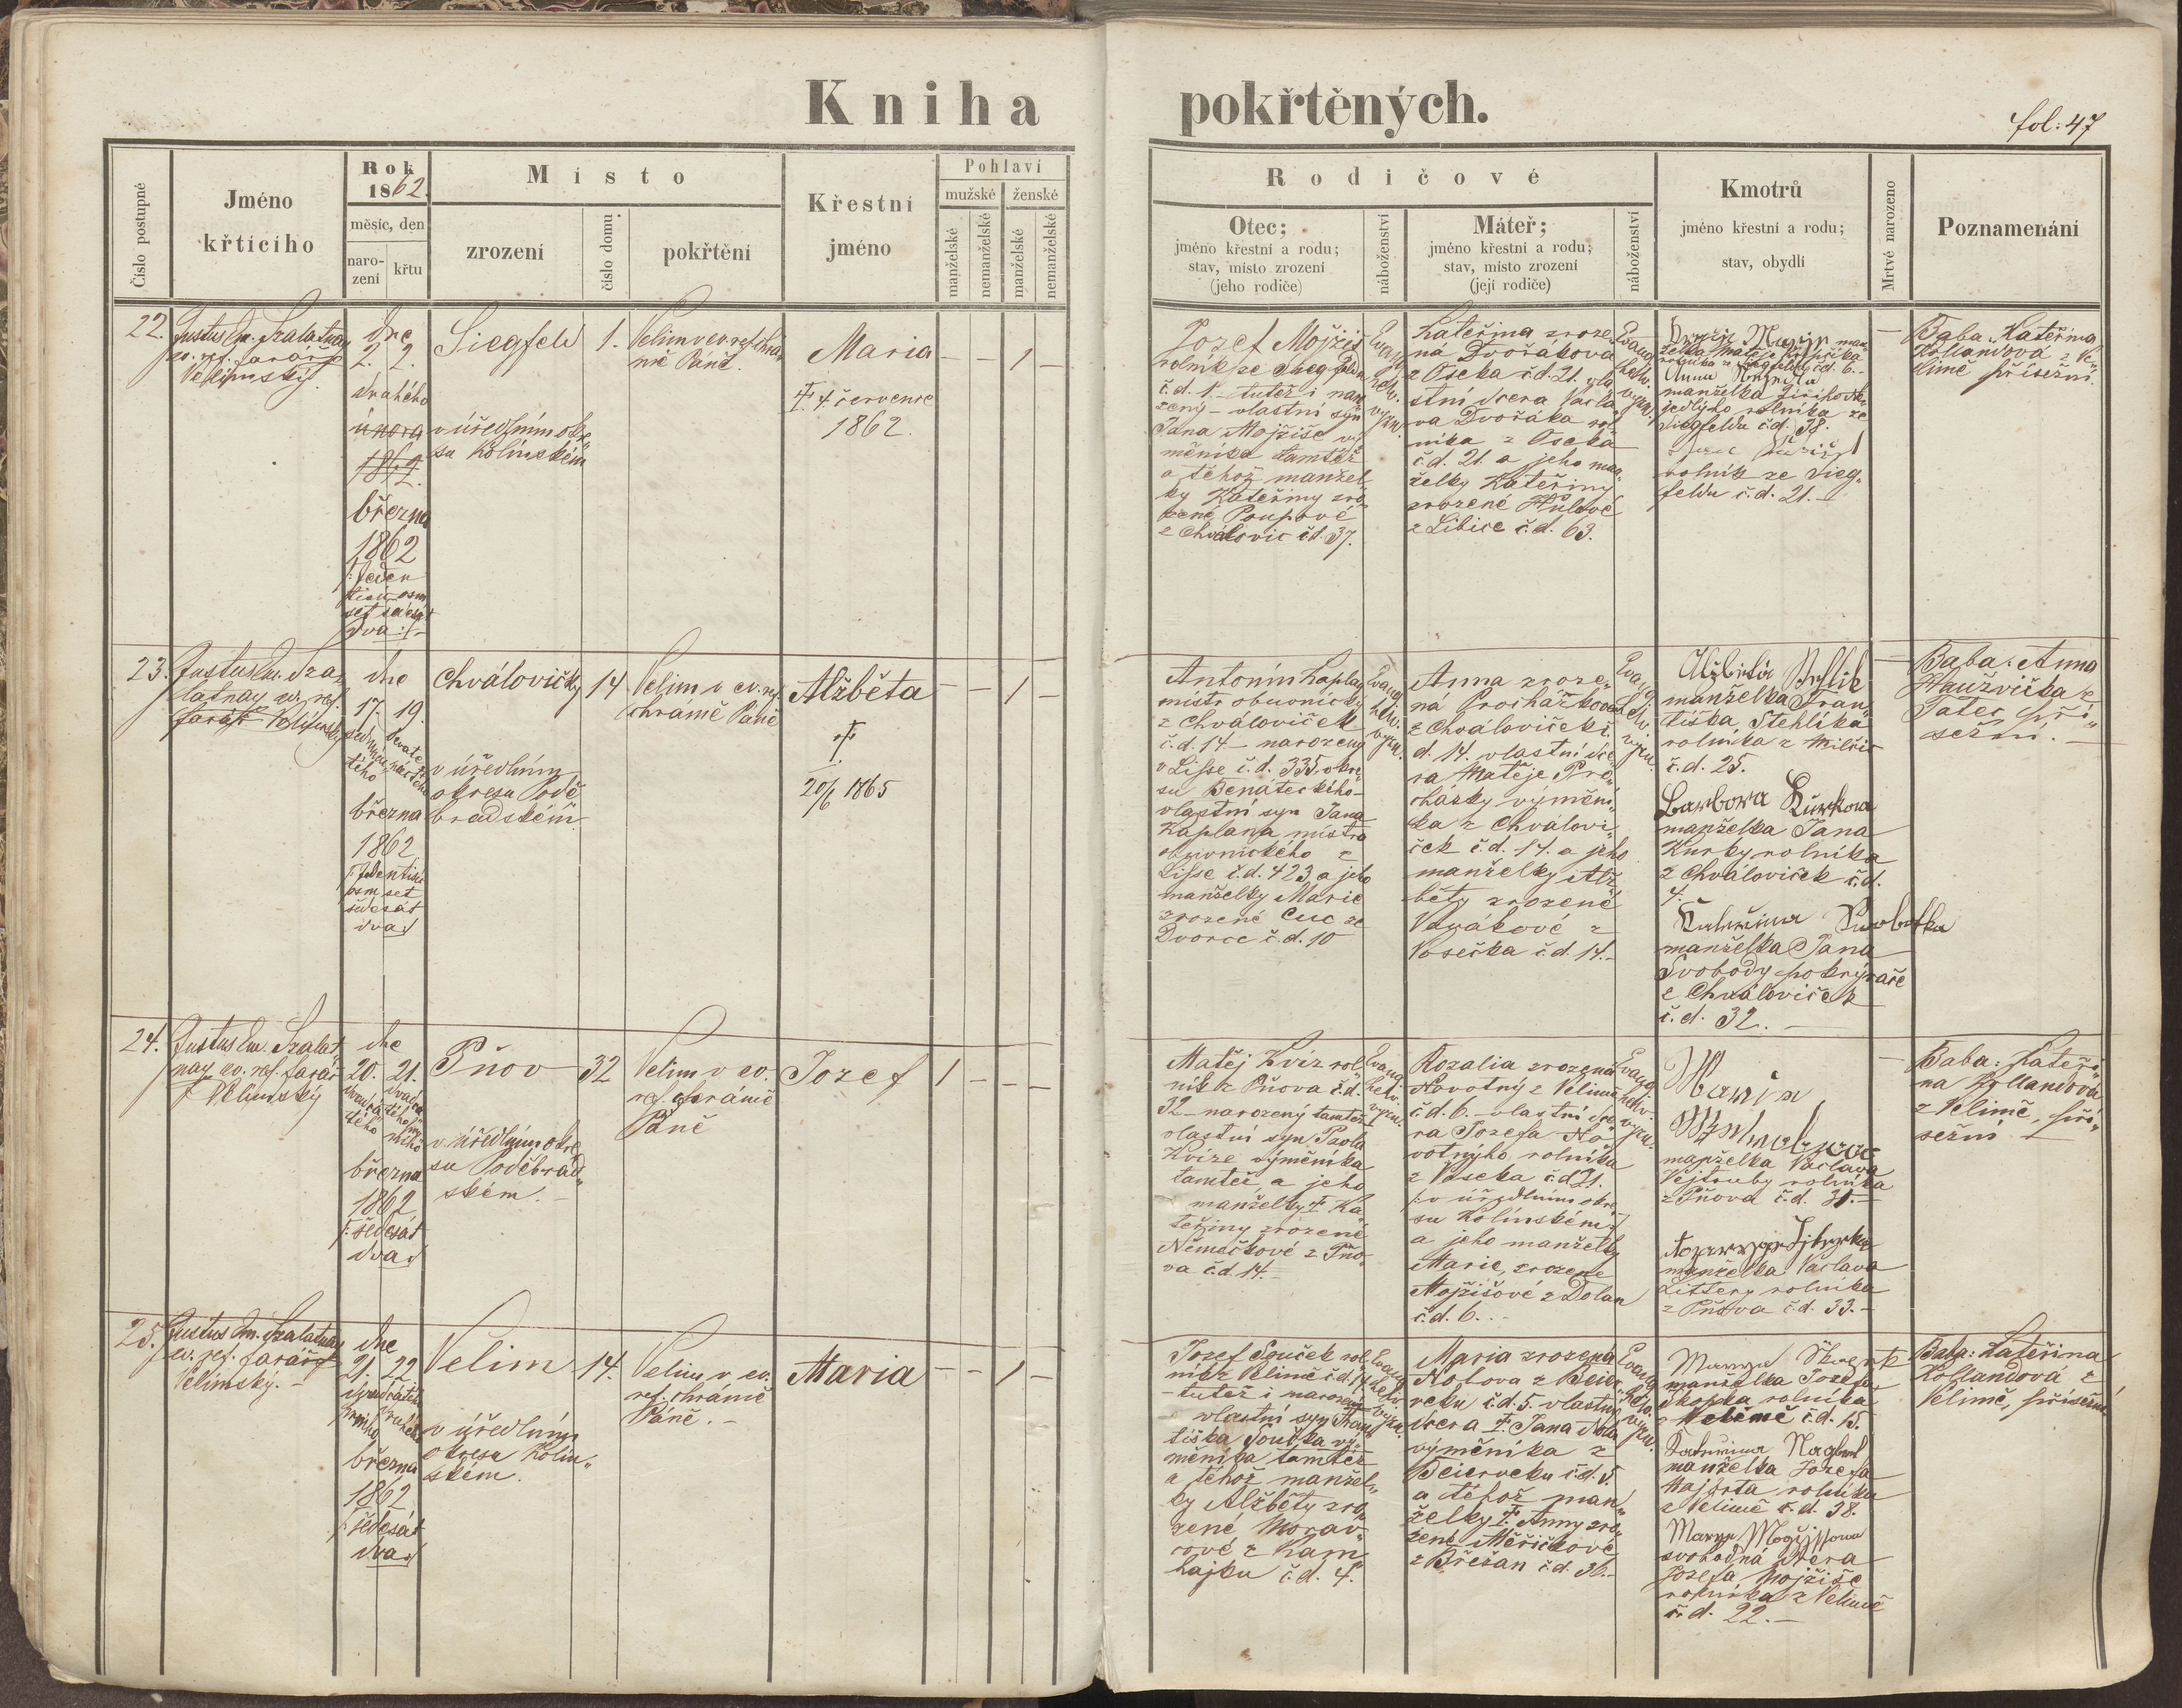 Kniha pokřtěných.
fol: 47
Číslo postupné
Jméno
křtícího
Rok
1862.
měsíc, den
naro-
zení
křtu
Místo
zrození
číslo domu
pokřtění
Křestní
jméno
Pohlaví
mužské
ženské
manželské
nemanželské
manželské
nemanželské
Rodičové
Otec;
jméno křestní a rodu;
stav, místo zrození
(jeho rodiče)
náboženství
Máteř;
jméno křestní a rodu;
stav, místo zrození
(její rodiče)
náboženství
Kmotrů
jméno křestní a rodu;
stav, obydlí
Mrtvé narozeno
Poznamenání
22.
Justus Em. Szalatnay
ev. ref. farář
Velimský.
dne
2. 2.
druhého
února
1862.
března
1862
/: jeden
tisíc osm
set šedesát
dva :/
Siegfeld
v úředním okre„
su Kolínském
1.
Velim v ev. ref. chrá
mě Páně.
Maria
† 4 července
1862.
— — 1 —
Jozef Mojžiš
rolník ze Siegfeldu
č. d. 1. tutéž i naro
zený – vlastní syn
Jana Mojžíše vý
měníka tamtéž
a téhož manžel„
ky Kateřiny zro
zené Poupové
z Chválovic č. d. 37.
Evang.
helv.
vyzn.
Kateřina zroze
ná Dvořákova
z Oseka č. d. 21. vla
stní dcera Václa
va Dvořáka rol
níka z Oseka
č. d. 21. a jeho man„
želky Kateřiny
zrozené Hůlové
z Libice č. d. 63.
Evang.
helv.
vyzn.
man
želka Matěje
rolníka z Siegfeldu č. d. 6.
Anna
manželka Jiřího Ne
jedlýho rolníka ze
Siegfeldu č. d. 38.
rolník ze Sieg„
feldu č. d. 21.
—
Baba: Kateřina
Kollandova z Ve„
limě přísežní.
23.
Justus Em. Sza„
latnay ev. ref.
farář Velimský
dne
17. 19.
sedmnác
tého
devate
náctého
března
1862
/: Jedentisíc
osm set
šedesát
dva :/
Chválovičky
v úředním
okresu Podě
bradském
14
Velim v ev. ref.
chrámě Páně
Alžběta
†
20/6 1865
— — 1 —
Antonín Kaplan
mistr obuvnický
z Chváloviček
č. d. 14 – narozený
v Lisse č. d. 335 okre
su Benáteckého –
vlastní syn Jana
Kaplana mistra
obuvnického z
Lisse č. d. 423 a jeho
manželky Marie
zrozené Cuc ze
Dvorce č. d. 10
Evang.
helv.
vyzn.
Anna zroze„
ná Procházkova
z Chváloviček č.
d. 14. vlastní dce
ra Matěje Pro
cházky výmění„
ka z Chválovi„
ček č. d. 14. a jeho
manželky Alž„
běty zrozené
z
Vosečka č. d. 14.–
Evang.
helv.
vyzn.
Alžběta
manželka Fran„
tiška Stehlíka
rolníka z Milčic
č. d. 25.
Barbora Kurkova
manželka Jana
Kurky rolníka
z Chváloviček č. d.
7.
Kateřina
manželka Jana
Svobody pokrývače
z Chváloviček
č. d. 32. —
—
Baba: Anna
Haužvička z
Tatec pří„
sežní. —
24.
Justus Em. Szalat„
nay ev. ref. farář
Velimský
dne
20. 21.
dvacá
tého
dvacá
tého pr
vního
března
1862
/: šedesát
dva :/
Pňov
v úředním okre
su Poděbrad„
ském. –
32
Velim v ev.
ref. chrámě
Páně
Jozef
1 — — —
Matěj Kvíz rol„
ník z Pňova č. d.
32 – narozený tamtéž
vlastní syn Pavla
Kvíze výměníka
tamtéž a jeho
manželky † Ka„
teřiny zrozené
Němečkové z Pňo„
va č. d. 14. –
Evang.
helv.
vyzn.
Rozalia zrozená
Novotný z Velimě
č. d. 6. – vlastní dce
ra Jozefa No
votnýho rolníka
z Voseka č. d. 21.
/: v úředním okre
su Kolínském :/
a jeho manželky
Marie, zrozené
Mojžíšové z Dolan
č. d. 6. . –
Evang.
helv.
vyzn.
Maria
manželka Václava
Vejtruby rolníka
z Pňova č. d. 31. –
manželka Václava
Littery rolníka
z Pňova č. d. 33. –
—
Baba: Kateři„
na Kollandová
z Velimě, pří„
sežní. –
25.
Justus Em. Szalatnay
ev. ref. farář
Velimský. –
dne
21. 22
března
1862
/: šedesát
dva :/
Velim
v úředním
okresu Kolín„
ském.
14.
Velim v ev.
ref. chrámě
Páně. –
Maria
— — 1 —
Jozef Souček rol
ník z Velimě č. d. 14
– tutéž i narozen
vlastní syn Fran
tiška Součka vý„
měníka tamtéž
a téhož manžel„
ky Alžběty zro
zené Morav„
cové z Kam
hajku č. d. 4.
Evang.
helv.
vyzn.
Maria zrozená
z Beier„
veku č. d. 5. vlastní
dcera † Jana
výměníka z
Beierveku č. d. 5
a téhož man„
želky † Anny zro„
zené Měřičkové
z Břežan č. d. 36. –
Evang.
helv.
vyzn.
manželka Jozefa
Skopka rolníka
z Velimě č. d. 15.
Kateřina
manželka Jozefa
rolníka
z Velimě č. d. 38.
Marye Mogžissowa
svobodná dcera
Jozefa Mojžíše
rolníka z Velimě
č. d. 22. –
Baba: Kateřina
Kollandová z
Velimě, přísežní